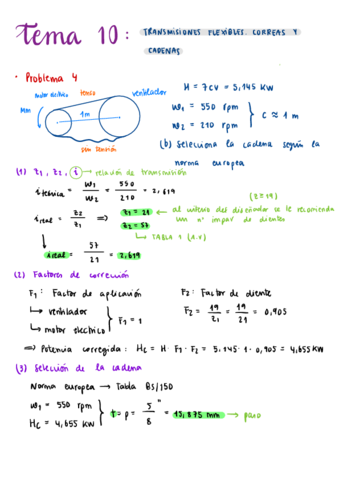 Tema 10: TRANSMISIONES FLEXIBLES. CORREAS Y
CADENAS
• Problema 4
motor eléctrico
tenso
ventilador
Mm
1m
sin tensión
H = 7CV = 5,145 KW
ω1 = 550 rpm
ω2 = 210 rpm
C ≈ 1 m
(b) Selecciona la cadena según la
norma europea
(1) z1, z2, i → relación de transmisión
i teórica = ω1/ω2 = 550/210 = 2,619
(z ≥ 19)
i real = z2/z1 ⇒ z1 = 21 ← al criterio del diseñador se le recomienda
un nº impar de dientes
z2 = 57
↳ TABLA 1
i real = 57/21 = 2,619
(2) Factores de corrección
F1: Factor de aplicación
↳ ventilador
↳ motor eléctrico
F1 = 1
F2: Factor de diente
F2 = 19/z1 = 19/21 = 0,905
⇒ Potencia corregida: Hc = H · F1 · F2 = 5,145 · 1 · 0,905 = 4,655 KW
(3) Selección de la cadena
Norma europea → Tabla BS/ISO
ω1 = 550 rpm
Hc = 4,655 KW
t = p = 5/8" = 15,875 mm → paso